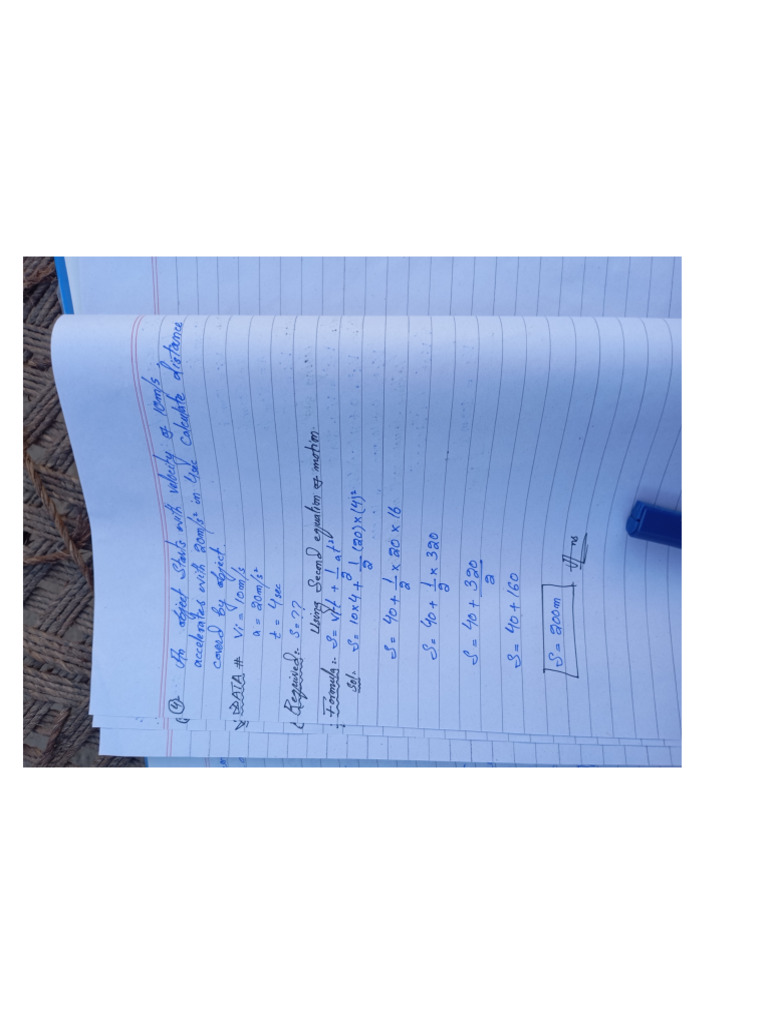 Q4 An object Starts with velocity of 10m/s
accelerates with 20m/s² in 4sec Calculate distance
coverd by object.
DATA # Vi = 10m/s
a = 20m/s²
t = 4sec
Required:- S = ??
Using Second equation of motion.
Formula:- S = Vit + 1/2 at²
Sol:- S = 10x4 + 1/2 (20) x (4)²
S = 40 + 1/2 x 20 x 16
S = 40 + 1/2 x 320
S = 40 + 320/2
S = 40 + 160
S = 200m